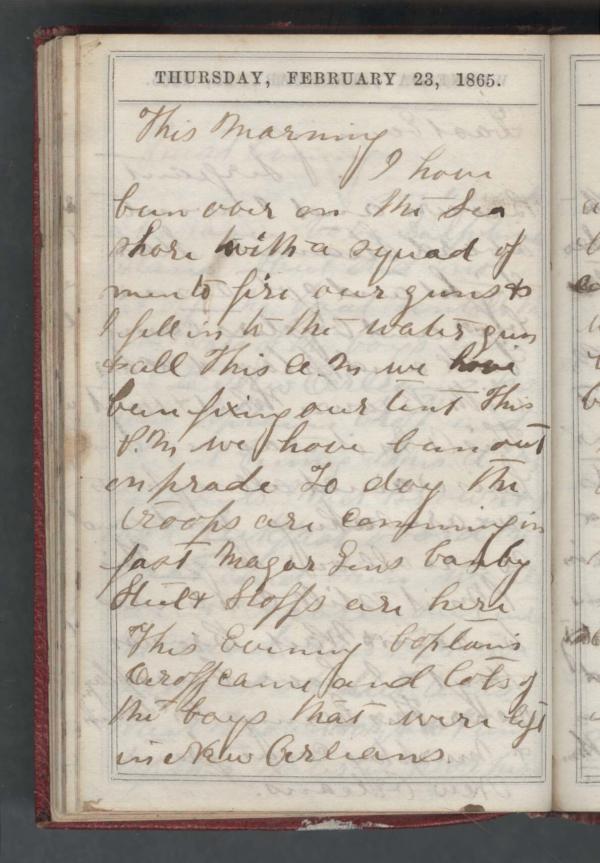 THURSDAY, FEBRUARY 23, 1865.
This Marning
I have
ben over on the Sea
shore with a squad of
men to fire our guns &
I fell in to the water gun
& all This A.M we have
ben fixing our tent This
P.M we have ben out
on prade To day the
troops are comming in
fast Magar Gens
Steel & Staffs are here
This Evening Captains
came and lots of
the boys that were left
in New Orleans.